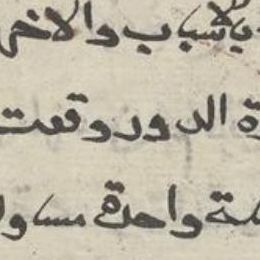 بالاسباب والاخر
ة الدور وقعت
ـلة واحدة مساو